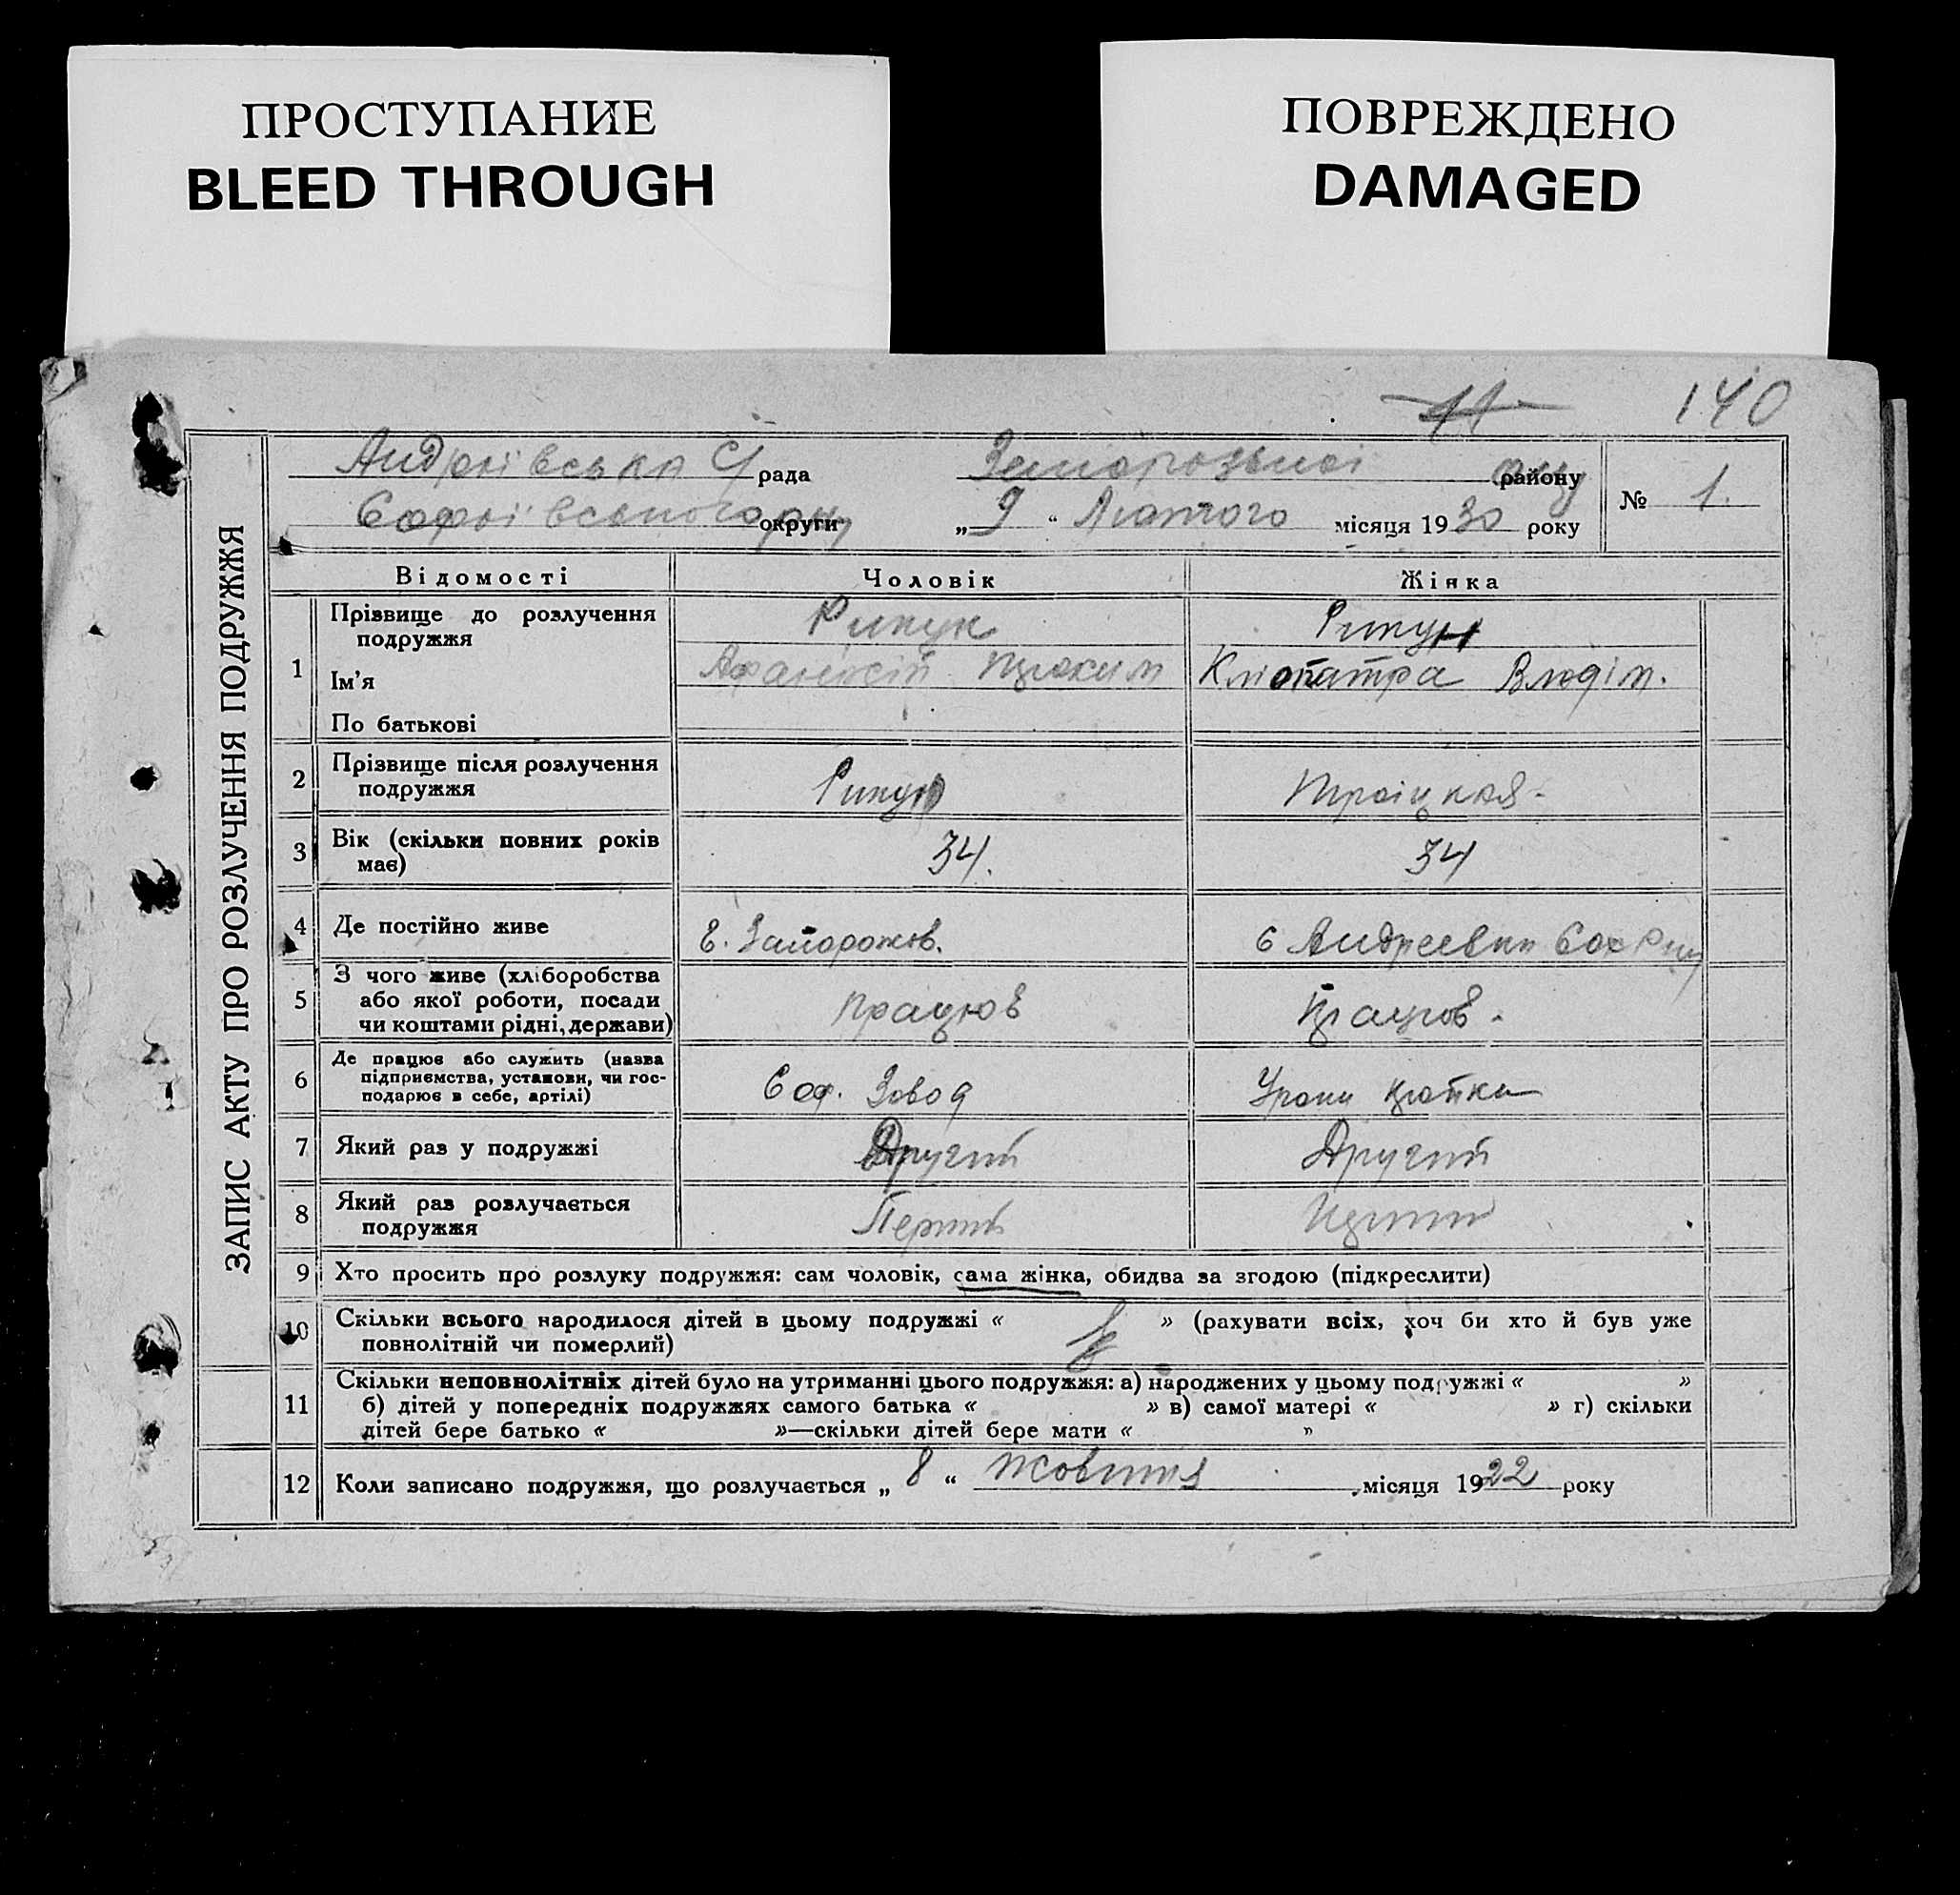 ПРОСТУПАНИЕ
BLEED THROUGH
ПОВРЕЖДЕНО
DAMAGED
11 140
ЗАПИС АКТУ ПРО РОЗЛУЧЕННЯ ПОДРУЖЖЯ
Андріївська С/рада району № 1.
округи „ 9 “ Лютого місяця 1930 року
Відомості Чоловік Жінка
1 Прізвище до розлучення подружжя Рипун Рипун
Ім'я Кліопатра Владім.
По батькові
2 Прізвище після розлучення
подружжя Рипун Троіцкая-
3 Вік (скільки повних років
має) 34. 34
4 Де постійно живе с. Запорожов. с Андреевки Соф Р-ну
5 З чого живе (хліборобства
або якої роботи, посади
чи коштами рідні, держави) працюв працюв-
6 Де працює або служить (назва
підприємства, установи, чи гос-
подарює в себе, артілі) Соф. Завод
7 Який раз у подружжі Другий Другий
8 Який раз розлучається
подружжя Перший
9 Хто просить про розлуку подружжя: сам чоловік, сама жінка, обидва за згодою (підкреслити)
10 Скільки всього народилося дітей в цьому подружжі « » (рахувати всіх, хоч би хто й був уже
повнолітній чи померлий)
11 Скільки неповнолітніх дітей було на утриманні цього подружжя: а) народжених у цьому подружжі « »
б) дітей у попередніх подружжях самого батька « » в) самої матері « » г) скільки
дітей бере батько « »—скільки дітей бере мати « »
12 Коли записано подружжя, що розлучається „ 8 “ Жовтня місяця 1922 року